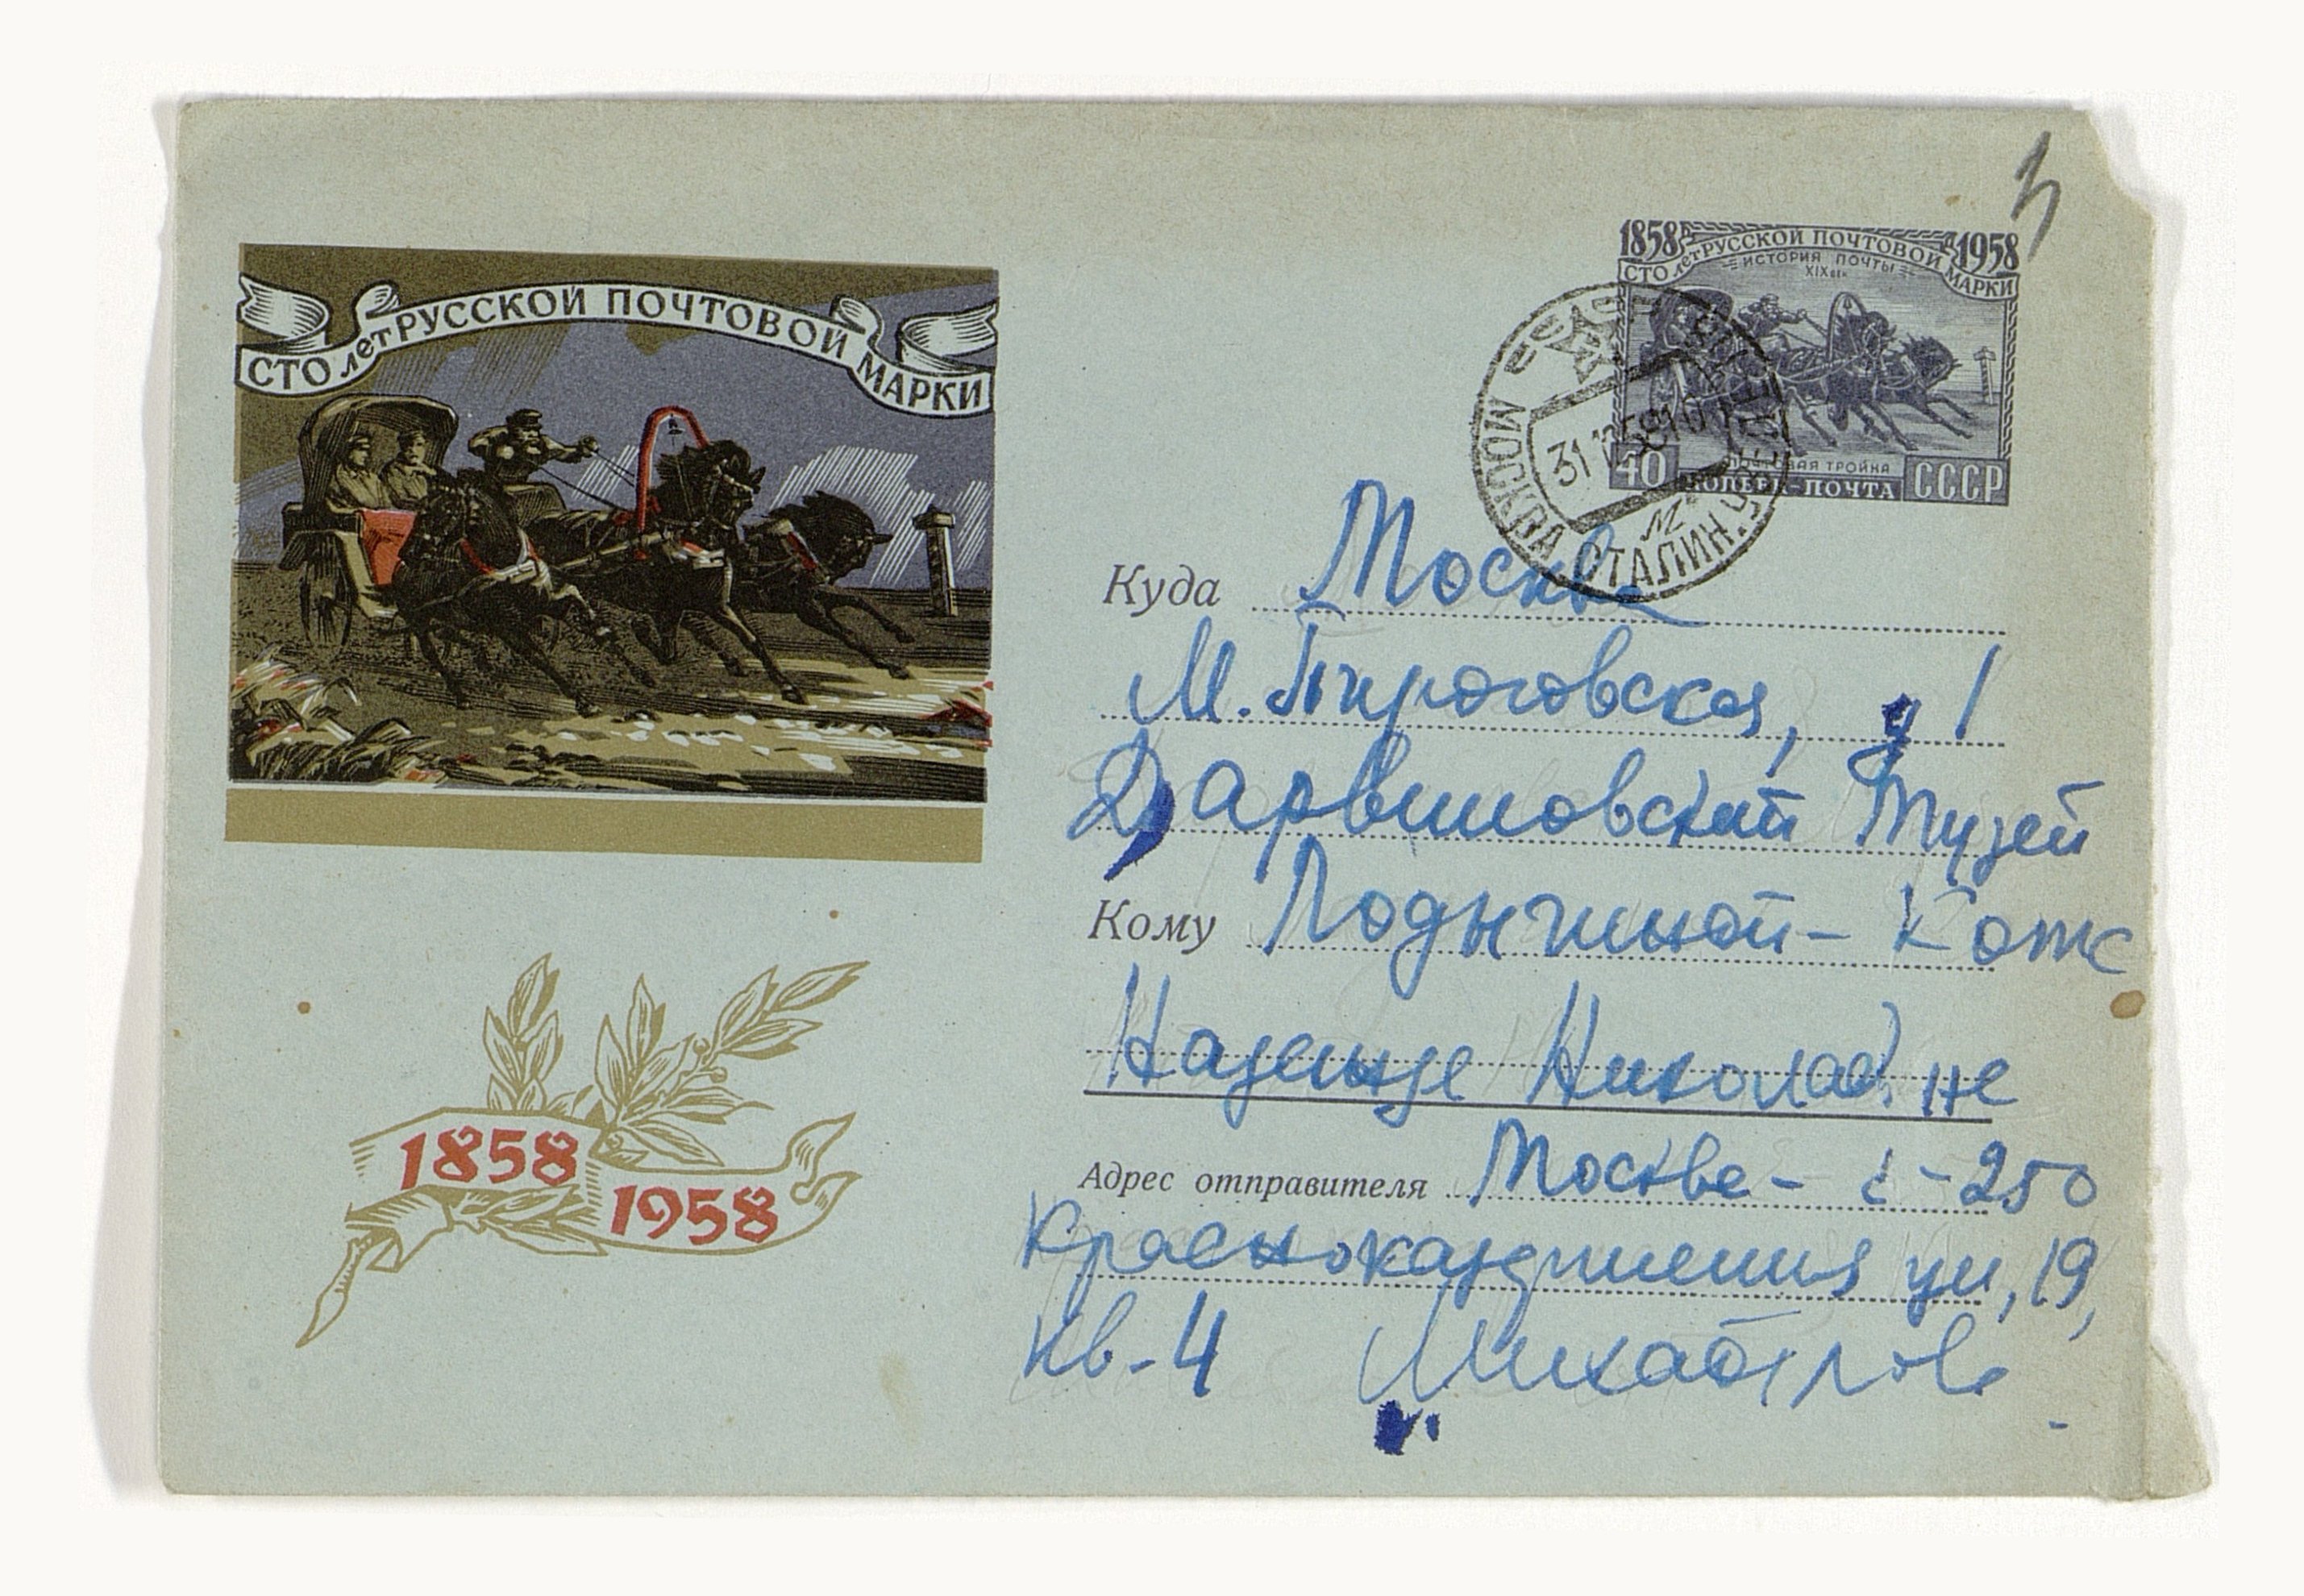 СТО лет РУССКОЙ ПОЧТОВОЙ МАРКИ
1858 1958
СТО лет РУССКОЙ ПОЧТОВОЙ МАРКИ
ИСТОРИЯ ПОЧТЫ
XIX век
ПОЧТОВАЯ ТРОЙКА
40 КОПЕЕК-ПОЧТА СССР
МОСКВА СТАЛИН.
31
Куда Москва
М. Пироговская, д 1
Дарвиновский Музей
Кому Ладыгиной - Котс
Надежде Николаевне
Адрес отправителя Москва - 250
Красноказарменная ул, 19,
кв-4
1858
1958